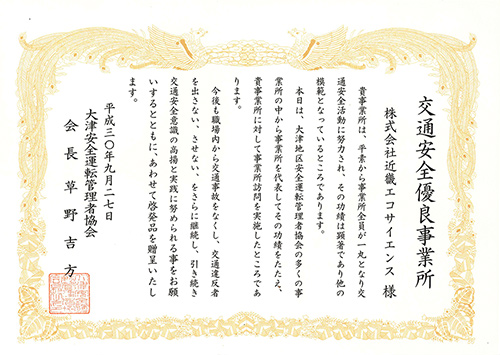 交通安全優良事業所
株式会社近畿エコサイエンス 様
貴事業所は、平素から事業所全員が一丸となり交
通安全活動に努力され、その功績は顕著であり他の
模範となっているところであります。
本日は、大津地区安全運転管理者協会の多くの事
業所の中から事業所を代表してその功績をたたえ、
貴事業所に対して事業所訪問を実施したところであ
ります。
今後も職場内から交通事故をなくし、交通違反者
を出さない、させない、をさらに継続し、引き続き
交通安全意識の高揚と実践に努められる事をお願
いするとともに、あわせて啓発品を贈呈いたし
ます。
平成三〇年九月二七日
大津安全運転管理者協会
会長 草野吉方